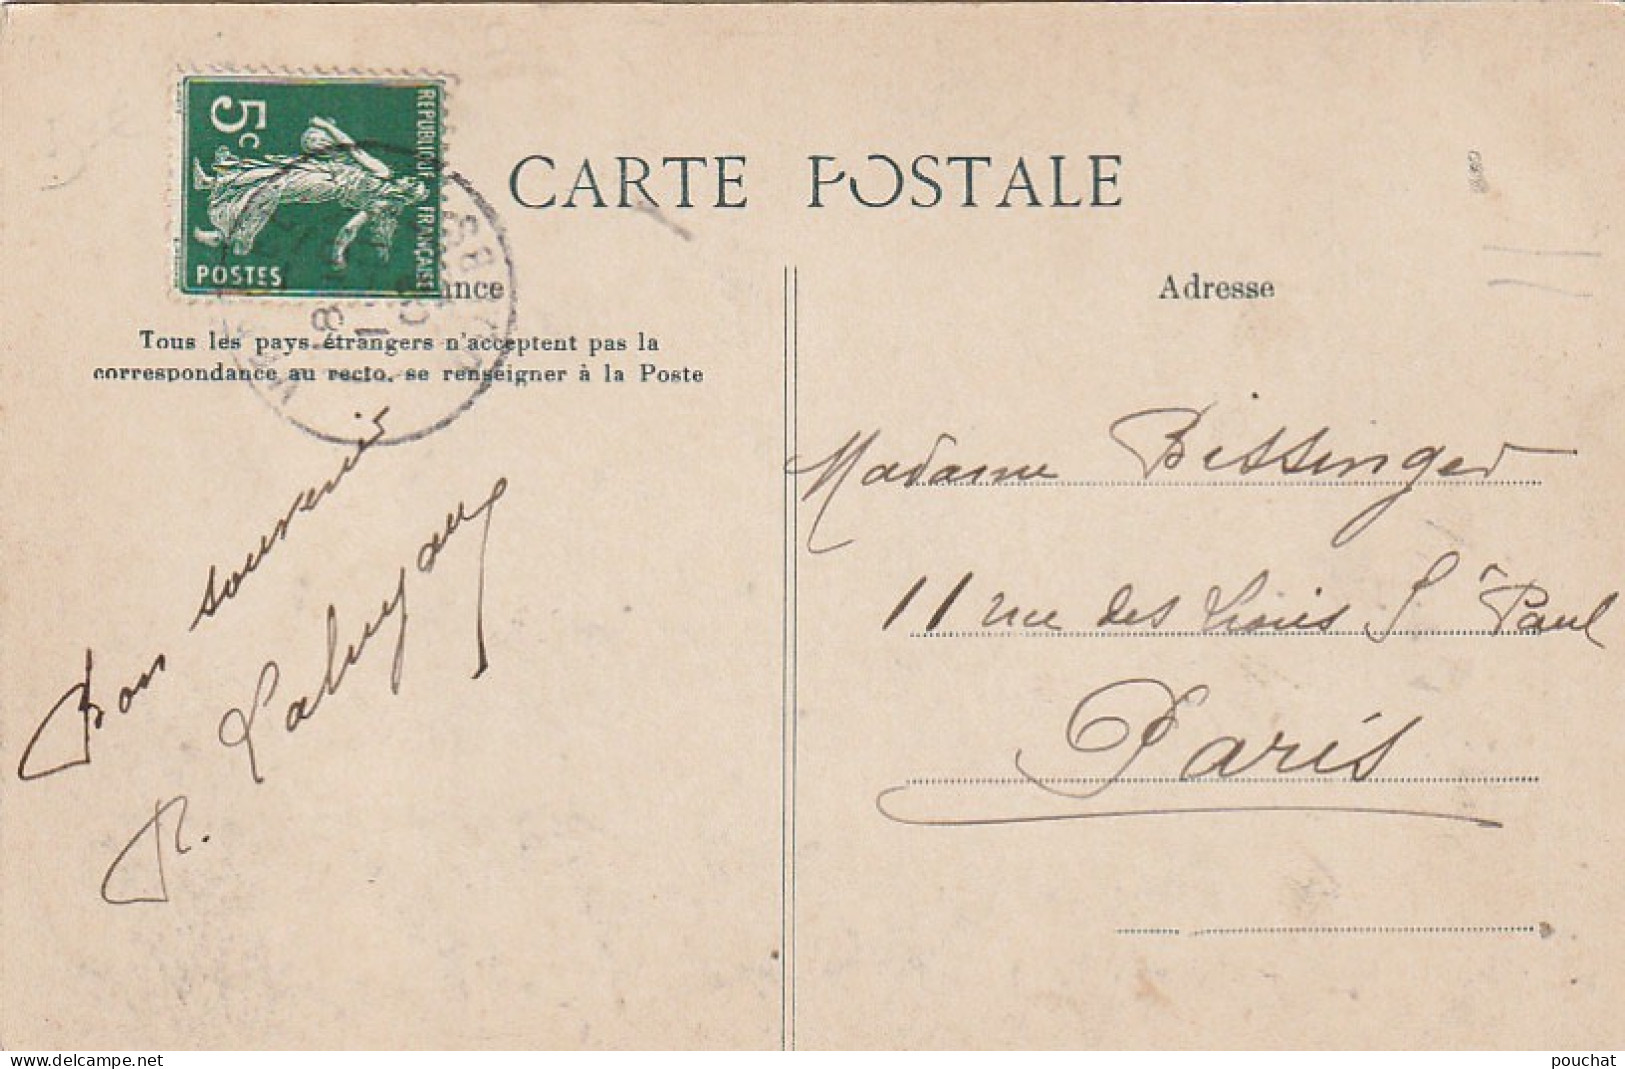 CARTE POSTALE
REPUBLIQUE FRANÇAISE
5c
POSTES
ance
Adresse
Tous les pays étrangers n'acceptent pas la
correspondance au recto, se renseigner à la Poste
Bon souvenir
R.
Madame Bissinger
11 rue des Lions St Paul
Paris
www.delcampe.net
pouchat